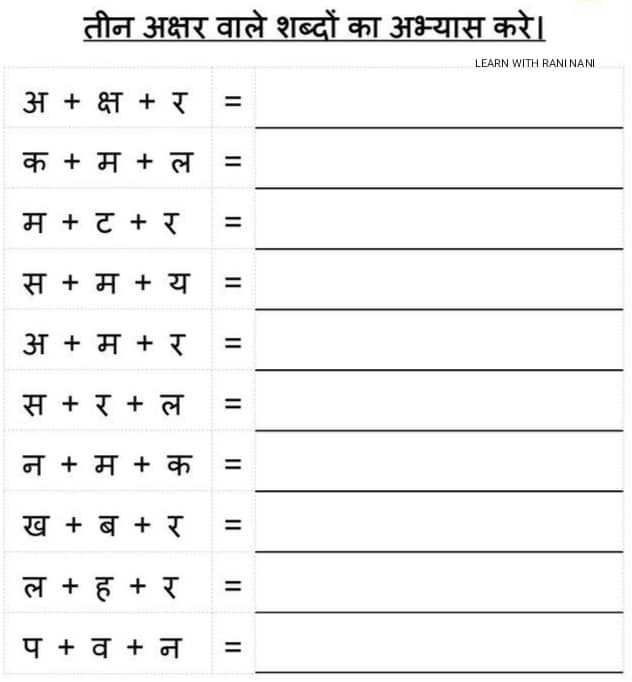 तीन अक्षर वाले शब्दों का अभ्यास करे।
LEARN WITH RANI NANI
अ + क्ष + र =
क + म + ल =
म + ट + र =
स + म + य =
अ + म + र =
स + र + ल =
न + म + क =
ख + ब + र =
ल + ह + र =
प + व + न =